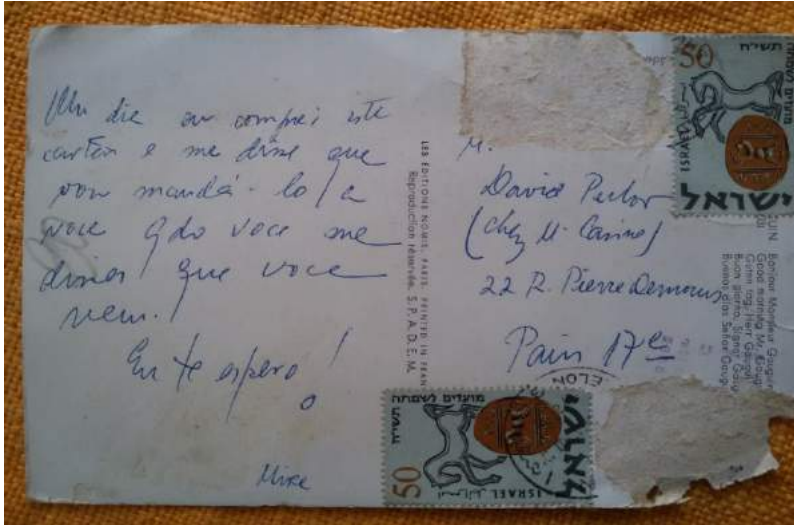 Um dia eu comprei este
cartão e me disse que
vou mandá-lo a
voce qdo voce me
disser que voce
vem.
Eu te espero!
Mire
LES ÉDITIONS NOMIS, PARIS. PRINTED IN FRAN
Reproduction réservée. S.P.A.D.E.M.
M.
David Perlov
(chez M. Casino)
22 R. Pierre Demours
Paris 17e
50
תשי"ח
מועדים לשמחה
ISRAEL
ישראל
UIN
Bonjour Monsieur Gauguin
Good morning Mr. Gaug
Guten tag, Herr Gaugui
Buon giorno, Signor Gaug
Buenos dias Señor Gaug
ELON
50
מועדים לשמחה תשי"ח
ISRAEL